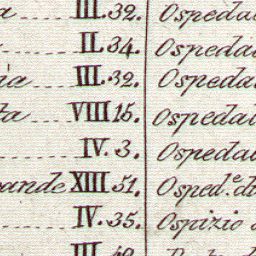 III.32. Ospeda
II.34. Ospeda
ia III.32. Ospeda
ta VIII 15. Ospeda
IV.3. Ospeda
ande XIII 51. Osped.e di
IV.35. Ospizio
III